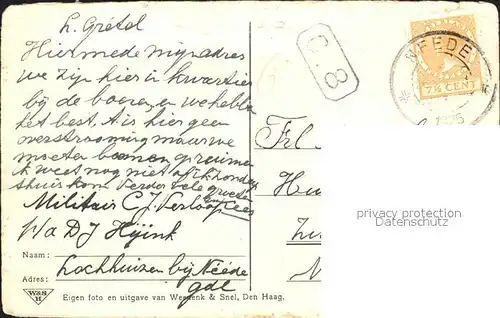 L. Gretel
Hiermede mijn adres
we zijn hier in kwartier
bij de boeren, we hebben
het best. A is hier geen
overstrooming maar we
moeten boomen opruimen
ik weet nog niet of ik honder
thuis kom Verder vele groeten
Cees
Militair C.J. Verloop
p/a D J Hijink
Naam:
Lochhuizen bij Néede
Adres:
gdl
W&S
H
Eigen foto en uitgave van Weenenk & Snel, Den Haag.
C.8
NEEDE
7½ CENT
Frl
privacy protection
Datenschutz